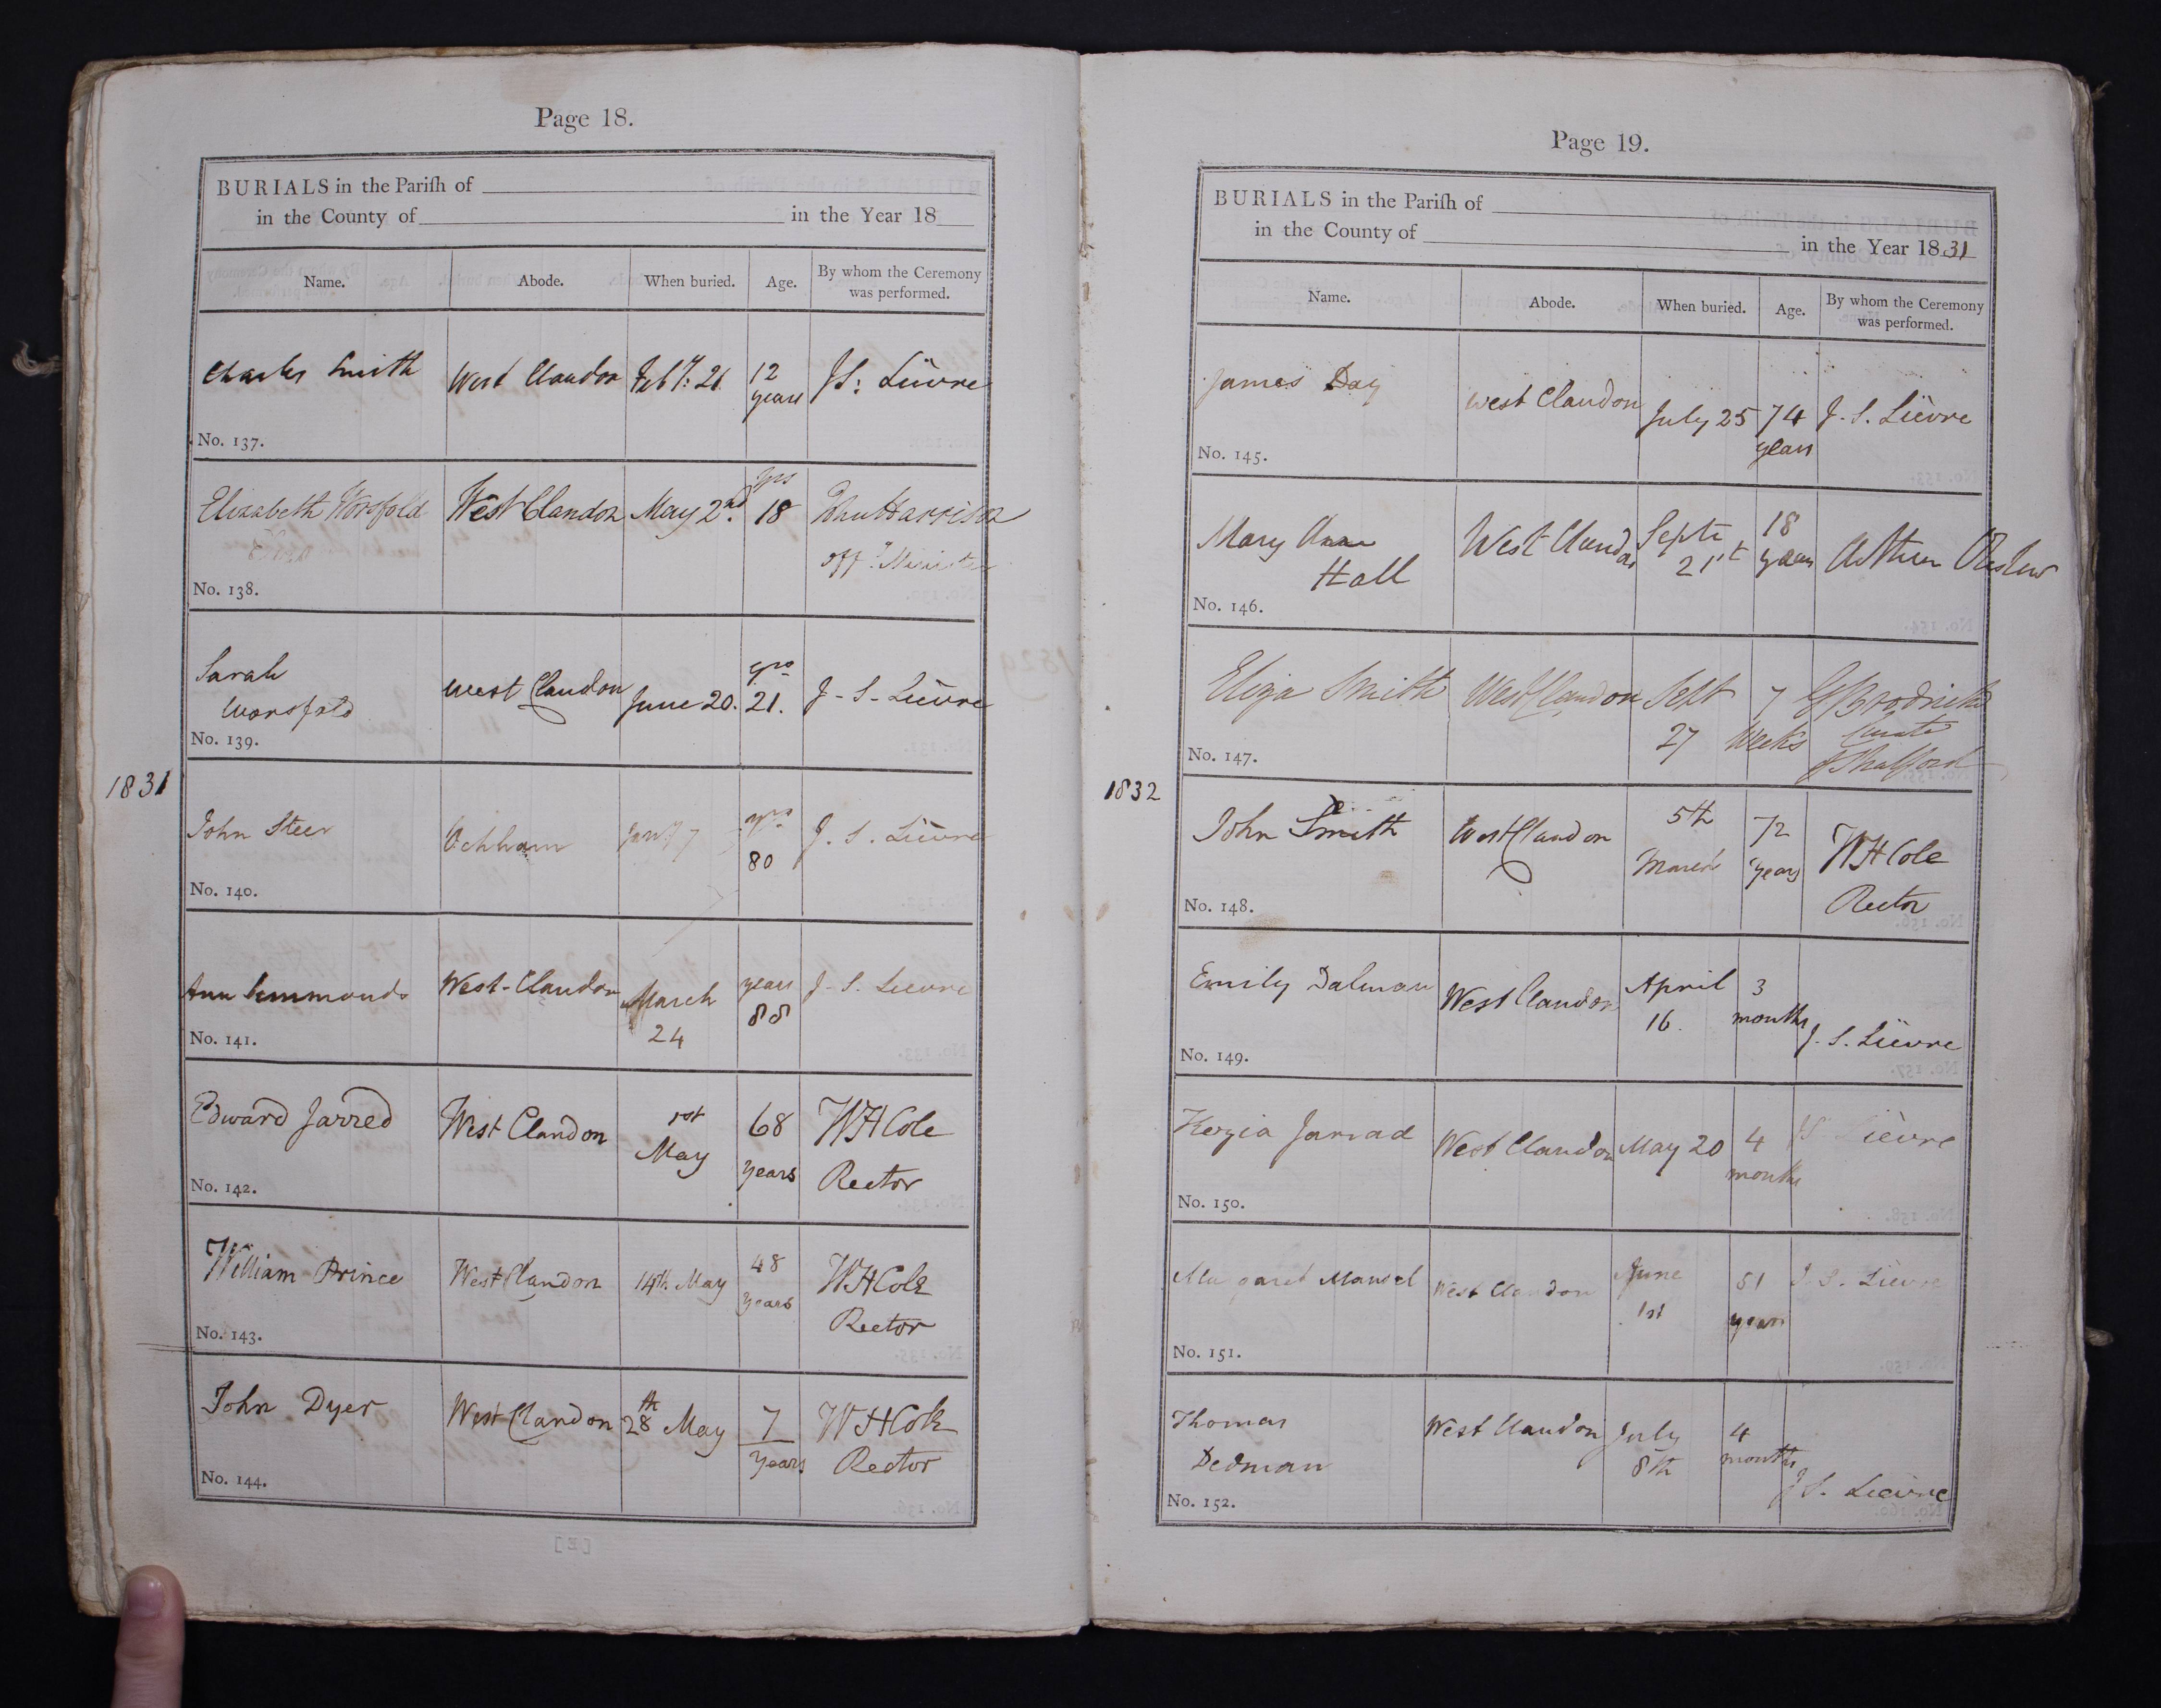 Page 18.
BURIALS in the Pariſh of
in the County of in the Year 18
Name. Abode. When buried. Age. By whom the Ceremony was performed.
Charles Smith West Clandon Feb.y: 21 12 years J S: Lièvre
No. 137.
Elizabeth Worsfold West Clandon May 2nd. yrs 18 John Harrison
off.g Minister
No. 138.
Sarah
Worsfold West Clandon June 20. yrs 21. J - S - Lièvre
No. 139.
1831
John Steer Ockham Jany 7 yrs 80 J. S. Lièvre
No. 140.
Ann Simmonds West-Clandon March 24 years 88 J - S. Lievre
No. 141.
Edward Jarred West Clandon 1st May 68 years W H Cole
Rector
No. 142.
William Prince West Clandon 14th. May 48 years W H Cole
Rector
No. 143.
John Dyer West Clandon 28th May 7 years W H Cole
Rector
No. 144.
Page 19.
BURIALS in the Pariſh of
in the County of in the Year 1831
Name. Abode. When buried. Age. By whom the Ceremony was performed.
James Day West Clandon July 25 74 years J. S. Lièvre
No. 145.
Mary Ann
Hall West Clandon Septr 21st 18 years Arthur Onslow
No. 146.
Eliza Smith West Clandon Sept 27 7 Weeks Curate
of Shalford
No. 147.
1832
John Smith West Clandon 5th March 72 years W H Cole
Rector
No. 148.
Emily Dalman West Clandon April 16. 3 months J. S. Lièvre
No. 149.
Kezia Jarrad West Clandon May 20 4 months J S Lièvre
No. 150.
Margaret Mansel West Clandon June 1st 51 years J. S. Lievre
No. 151.
Thomas
Dedman West Clandon July 8th 4 months J S. Lièvre
No. 152.